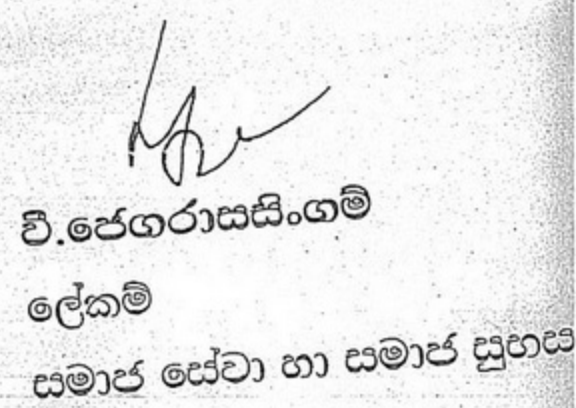 වී.ජෙගරාසසිංගම්
ලේකම්
සමාජ සේවා හා සමාජ සුභස